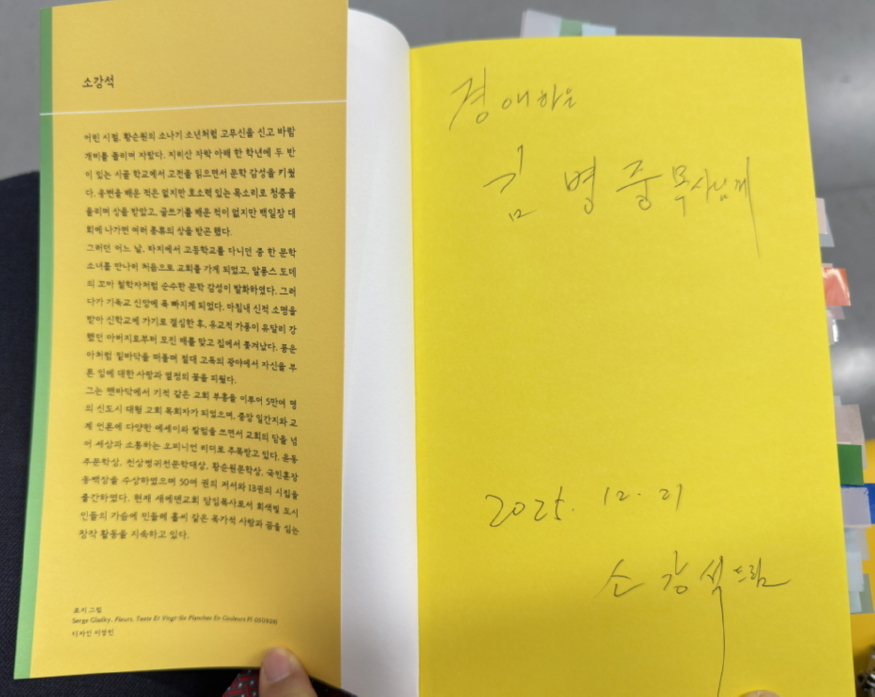 소강석
어린 시절, 황순원의 소나기 소년처럼 고무신을 신고 바람
개비를 돌리며 자랐다. 지리산 자락 아래 한 학년에 두 반
이 있는 시골 학교에서 고전을 읽으면서 문학 감성을 키웠
다. 웅변을 배운 적은 없지만 호소력 있는 목소리로 청중을
울리며 상을 받았고, 글쓰기를 배운 적이 없지만 백일장 대
회에 나가면 여러 종류의 상을 받곤 했다.
그러던 어느 날, 타지에서 고등학교를 다니던 중 한 문학
소녀를 만나러 처음으로 교회를 가게 되었고, 알퐁스 도데
의 꼬마 철학자처럼 순수한 문학 감성이 발화하였다. 그러
다가 기독교 신앙에 푹 빠지게 되었다. 마침내 신적 소명을
받아 신학교에 가기로 결심한 후, 유교적 가풍이 유달리 강
했던 아버지로부터 모진 매를 맞고 집에서 쫓겨났다. 풍운
아처럼 밑바닥을 떠돌며 절대 고독의 광야에서 자신을 부
른 임에 대한 사랑과 열정의 꽃을 피웠다.
그는 맨바닥에서 기적 같은 교회 부흥을 이루어 5만여 명
의 신도시 대형 교회 목회자가 되었으며, 중앙 일간지와 교
계 언론에 다양한 에세이와 칼럼을 쓰면서 교회의 담을 넘
어 세상과 소통하는 오피니언 리더로 주목받고 있다. 윤동
주문학상, 천상병귀천문학대상, 황순원문학상, 국민훈장
동백장을 수상하였으며 50여 권의 저서와 13권의 시집을
출간하였다. 현재 새에덴교회 담임목사로서 회색빛 도시
인들의 가슴에 민들레 홀씨 같은 목가적 사랑과 꿈을 심는
창작 활동을 지속하고 있다.
표지 그림
Serge Gladky, Fleurs, Texte Et Vingt-Six Planches En Couleurs Pl
디자인 이정민
경애하는
김병중 목사님께
2025. 12. 21
소강석 드림